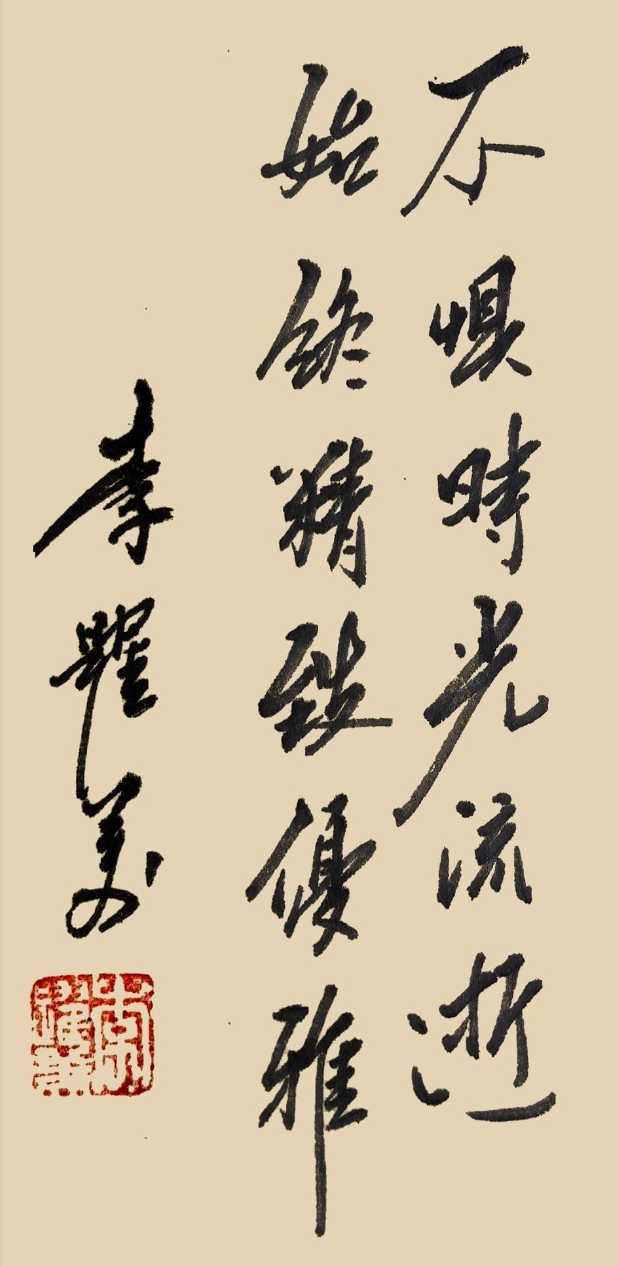 不懼時光流逝
始終精致優雅
李耀美